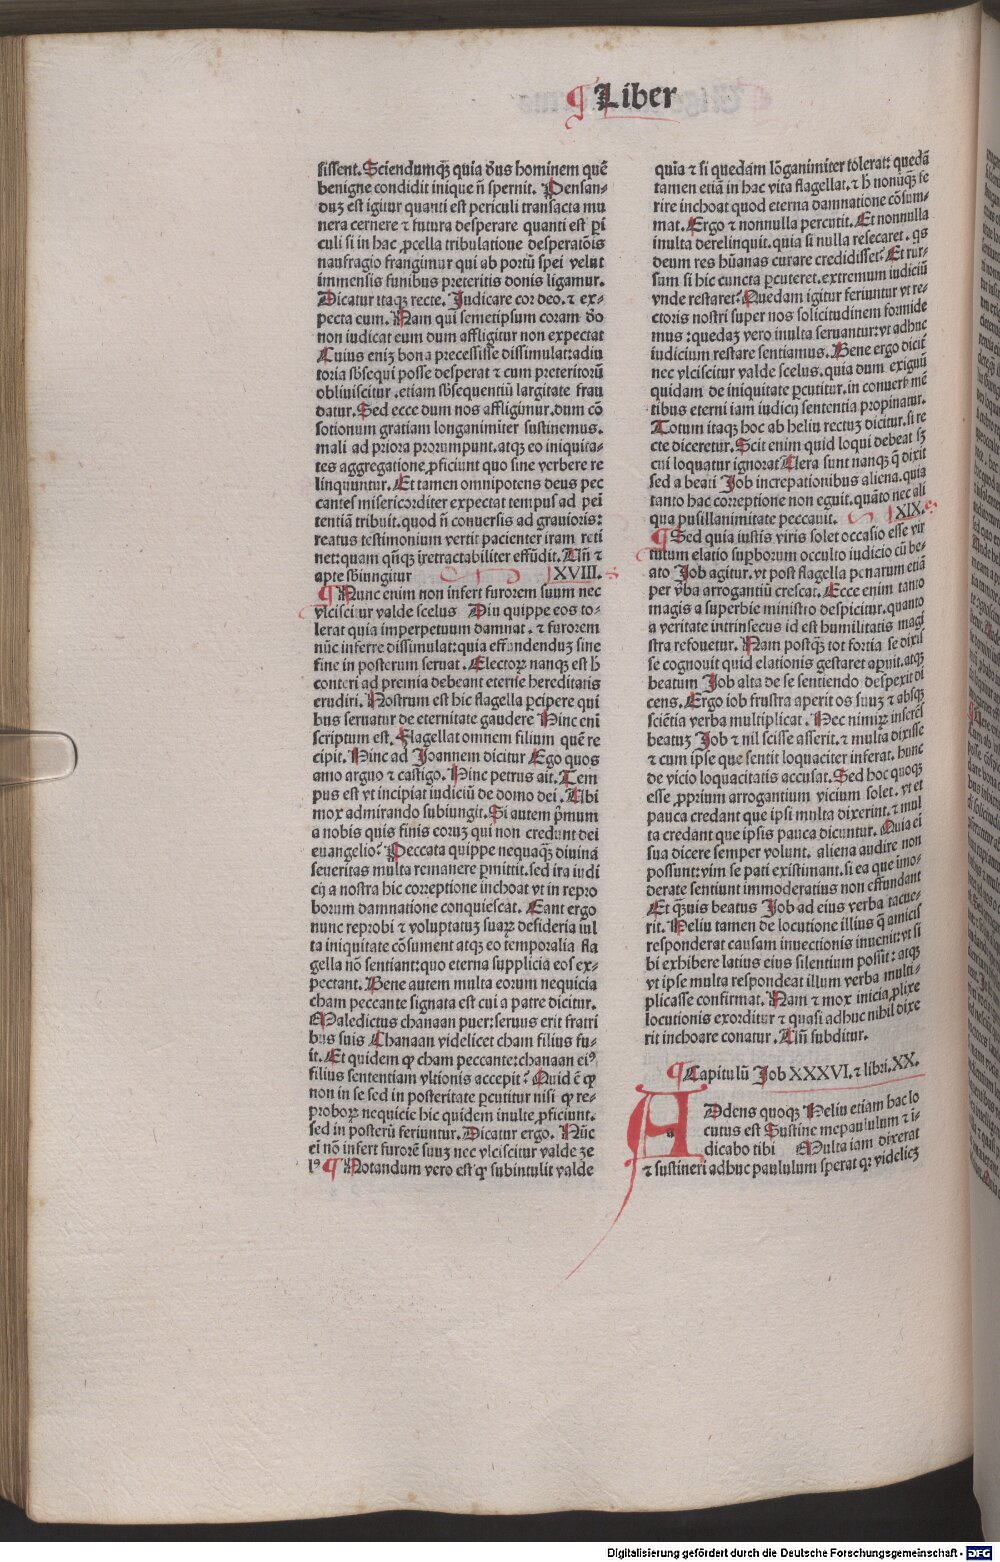 ¶ Liber
sissent. Sciendumq̄ʒ quia dūs hominem quē
benigne condidit inique n̄ spernit. Pensan-
duʒ est igitur quanti est periculi transacta mu
nera cernere ⁊ futura desperare quanti est pi
culi si in hac ꝓcella tribulatione desperatōis
naufragio frangimur qui ab portū spei velut
immensis funibus preteritis donis ligamur.
Dicatur itaqʒ recte. Judicare coꝛ deo. ⁊ ex-
pecta eum. Nam qui semetipsum coram dō
non iudicat eum dum affligitur non expectat
Cuius eniʒ bona precessisse dissimulat: adiu
toria sb̄sequi posse desperat ⁊ cum preteritoꝝ
obliuiscitur. etiam sb̄sequentiū largitate frau
datur. Sed ecce dum nos affligimur. dum cō
solationum gratiam longanimiter sustinemus.
mali ad priora prorumpunt. atqʒ eo iniquita-
tes aggregatione ꝓficiunt quo sine verbere re
linquuntur. Et tamen omnipotens deus pec
cantes misericorditer expectat tempus ad peī
tentiā tribuit. quod n̄ conuersis ad grauioris:
reatus testimonium vertit pacienter iram reti
net: quam qn̄qʒ irretractabiliter effūdit. Un̄ ⁊
apte sb̄iungitur XVIII.
¶ Nunc enim non infert furorem suum nec
vlciscitur valde scelus Diu quippe eos to-
lerat quia imperpetuum damnat. ⁊ furorem
nūc inferre dissimulat: quia effundenduʒ sine
fine in posterum seruat. Electoꝝ nanqʒ est h̄
conteri ad premia debeant eterne hereditatis
erudiri. Nostrum est hic flagella ꝑcipere qui
bus seruatur de eternitate gaudere Hinc eni
scriptum est. Flagellat omnem filium quē re
cipit. Hinc ad Joannem dicitur Ego quos
amo arguo ⁊ castigo. Hinc petrus ait. Tem
pus est vt incipiat iudiciū de domo dei. Ubi
mox admirando subiungit. Si autem p̄mum
a nobis quis finis eoruʒ qui non credunt dei
euangelio? Peccata quippe nequaq̄ʒ diuina
seueritas multa remanere ꝑmittit. sed ira iudi
cij a nostra hic correptione inchoat vt in repro
borum damnatione conquiescat. Eant ergo
nunc reprobi ⁊ voluptatuʒ suaꝝ desideria iul
ta iniquitate cōsument atqʒ eo temporalia fla
gella nō sentiant: quo eterna supplicia eos ex-
pectant. Bene autem multa eorum nequicia
cham peccante signata est cui a patre dicitur.
Maledictus chanaan puer: seruus erit fratri
bus suis Chanaan videlicet cham filius fu-
it. Et quidem ꝙ cham peccante: chanaan ei⁹
filius sententiam vltionis accepit? Quid ē ꝙ
non in se sed in posteritate ꝑcutitur nisi ꝙ re-
proboꝝ nequicie hic quidem inulte ꝓficiunt.
sed in posterū feriuntur. Dicatur ergo. Nūc
ei nō infert furorē suuʒ nec vlciscitur valde sce
l⁹ ¶ Notandum vero est ꝙ subintulit valde
quia ⁊ si quedam lōganimiter tolerat: quedā
tamen etiā in hac vita flagellat. ⁊ h̄ nonnūqʒ fe
rire inchoat quod eterna damnatione cōsum-
mat. Ergo ⁊ nonnulla percutit. Et nonnulla
inulta derelinquit. quia si nulla resecaret. qs
deum res hūanas curare credidisset? Et rur-
sum si hic cuncta ꝑcuteret. extremum iudiciū
vnde restaret? Quedam igitur feriuntur vt re-
ctoris nostri super nos solicitudinem formide
mus: quedaʒ vero inulta seruantur: vt adhuc
iudicium restare sentiamus. Bene ergo dicit̄
nec vlciscitur valde scelus. quia dum exiguū
quidam de iniquitate ꝑcutitur. in conuerẜ mē
tibus eterni iam iudicij sententia propinatur.
Totum itaqʒ hoc ab heliu rectuʒ dicitur. si re
cte diceretur. Scit enim quid loqui debeat sʒ
cui loquatur ignorat Uera sunt nanqʒ q̄ dixit
sed a beati Job increpationibus aliena. quia
tanto hac correptione non eguit. quāto nec ali
qua pusillanimitate peccauit. XIX.
¶ Sed quia iustis viris solet occasio esse vir
tutum elatio suꝑborum occulto iudicio cū be-
ato Job agitur. vt post flagella penarum etiā
per v̄ba arrogantiū crescat. Ecce enim tanto
magis a superbie ministro despicitur. quanto
a veritate intrinsecus id est humilitatis magi
stra refouetur. Nam postq̄ʒ tot fortia se dixit
se cognouit quid elationis gestaret aꝑuit. atqʒ
beatum Job alta de se sentiendo despexit di
cens. Ergo iob frustra aperit os suuʒ ⁊ absqʒ
sciētia verba multiplicat. Nec nimiꝝ inscrēs
beatuʒ Job ⁊ nil scisse asserit. ⁊ multa dixisse
⁊ cum ipse que sentit loquaciter inferat. hunc
de vicio loquacitatis accusat. Sed hoc quoqʒ
esse ꝓprium arrogantium vicium solet. vt et
pauca credant que ipsi multa dixerint. ⁊ mul
ta credant que ipsis pauca dicuntur. Quia eī
sua dicere semper volunt. aliena audire non
possunt: vim se pati existimant. si ea que imo-
derate sentiunt immoderatius non effundant
Et q̄ʒuis beatus Job ad eius verba tacue-
rit. Heliu tamen de locutione illius q̄ amicis
responderat causam inuectionis inuenit: vt si
bi exhibere latius eius silentium possit: atqʒ
vt ipse multa respondeat illum verba multi-
plicasse confirmat. Nam ⁊ mox inicia ꝓlixe
locutionis exorditur ⁊ quasi adhuc nihil dixe
rit inchoare conatur. Un̄ subditur.
¶ Capitulū Job XXXVI. ⁊ libri. XX.
ADdens quoqʒ Heliu etiam hac lo
cutus est Sustine me paululum ⁊ i-
dicabo tibi Multa iam dixerat
⁊ sustineri adhuc paululum sperat qꝛ videliceʒ
Digitalisierung gefördert durch die Deutsche Forschungsgemeinschaft - DFG